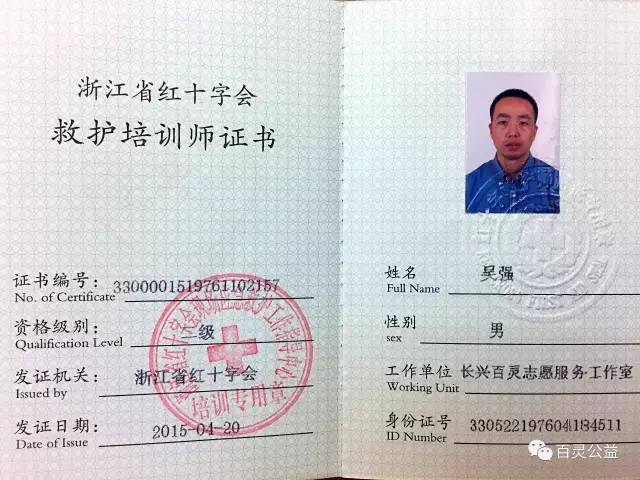 浙江省红十字会
救护培训师证书
证书编号: 3300001519761102157
No. of Certificate
资格级别: 二级
Qualification Level
发证机关: 浙江省红十字会
Issued by
发证日期: 2015-04-20
Date of Issue
培训专用章
姓名 吴强
Full Name
性别 男
sex
工作单位 长兴百灵志愿服务工作室
Working Unit
身份证号 330522197604184511
ID Number
百灵公益